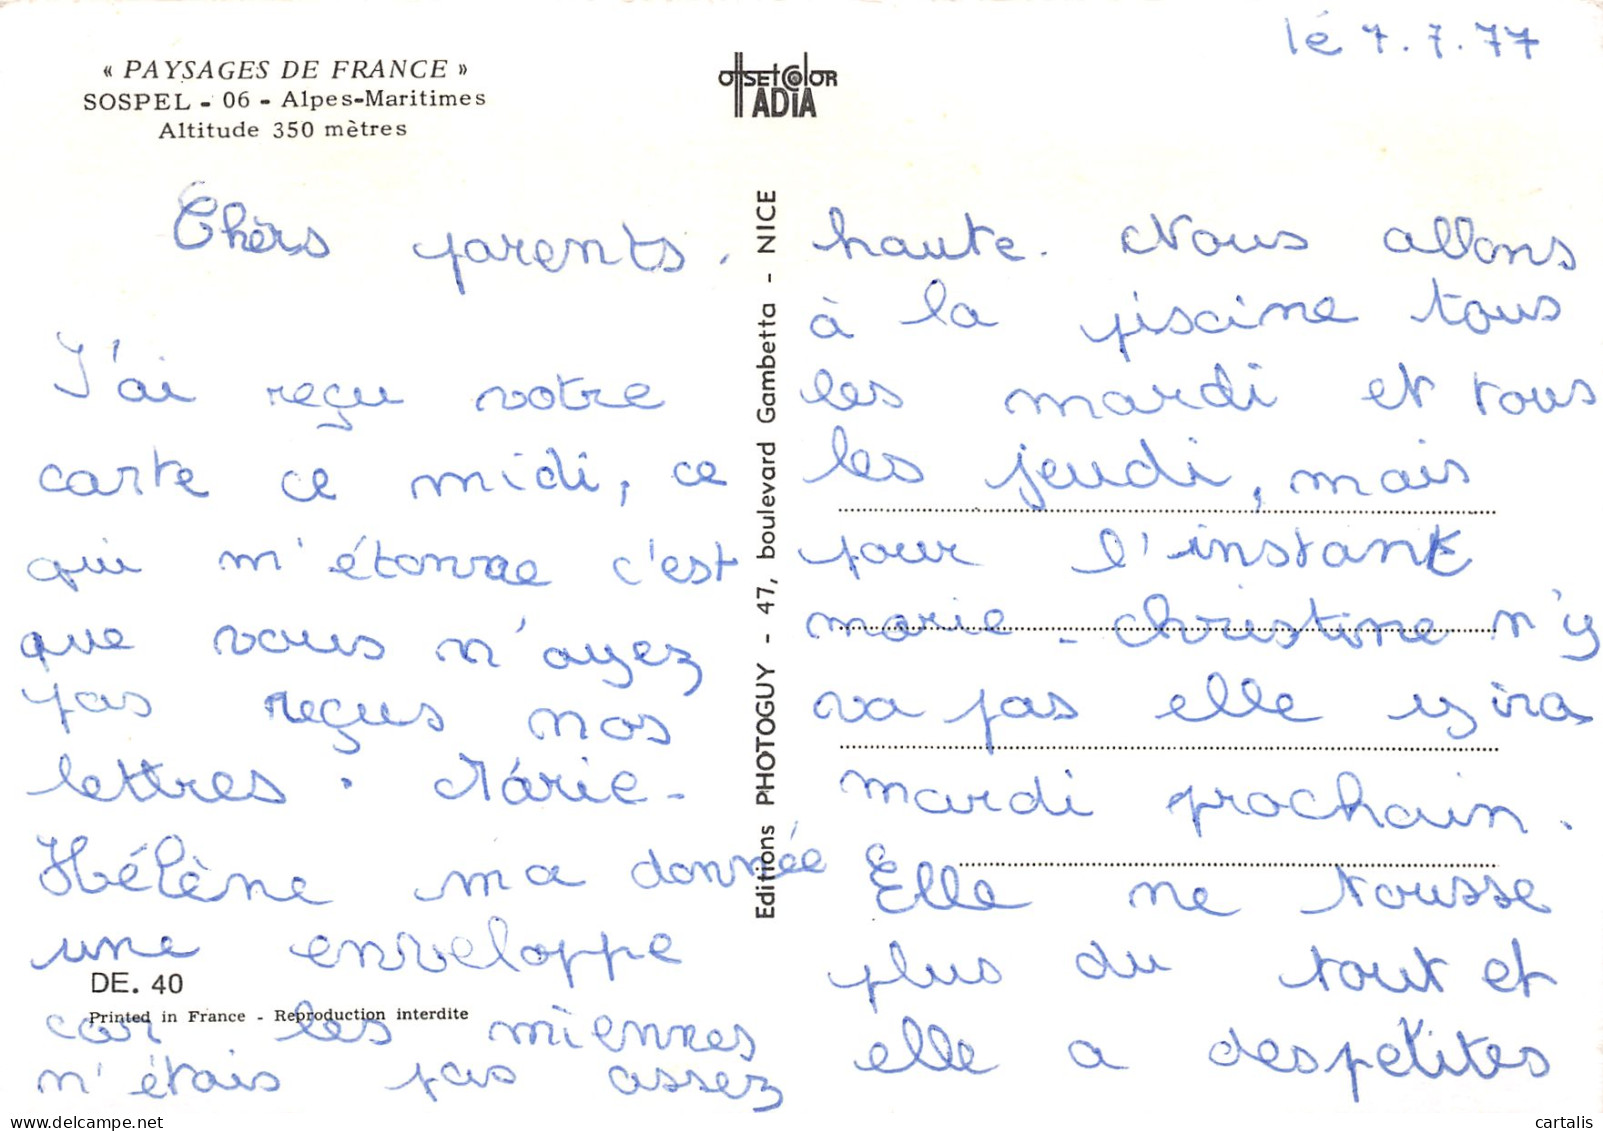 « PAYSAGES DE FRANCE »
SOSPEL - 06 - Alpes-Maritimes
Altitude 350 mètres
OffSEt COlOR
ADIA
lé 7.7.77
Chèrs parents,
J'ai reçu votre
carte ce midi, ce
qui m'étonne c'est
que vous n'ayez
pas reçus nos
lettres. Marie-
Hélène ma donnée
une enveloppe
car les miennes
n'étais pas assez
DE. 40
Printed in France - Reproduction interdite
Editions PHOTOGUY - 47, boulevard Gambetta - NICE
haute. Nous allons
à la piscine tous
les mardi et tous
les jeudi, mais
pour l'instant
marie-christine n'y
va pas elle y ira
mardi prochain.
Elle ne tousse
plus du tout et
elle a des petites
cartalis
delcampe.net